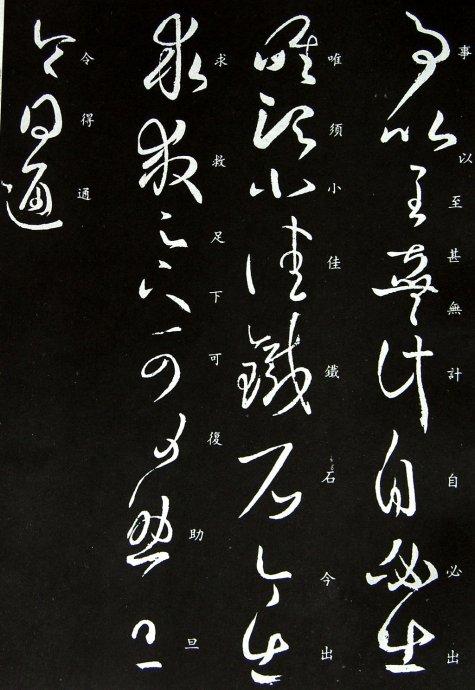 事以至甚無計自必出
唯須小佳鐵石今出
求救足下可復助旦
令得通